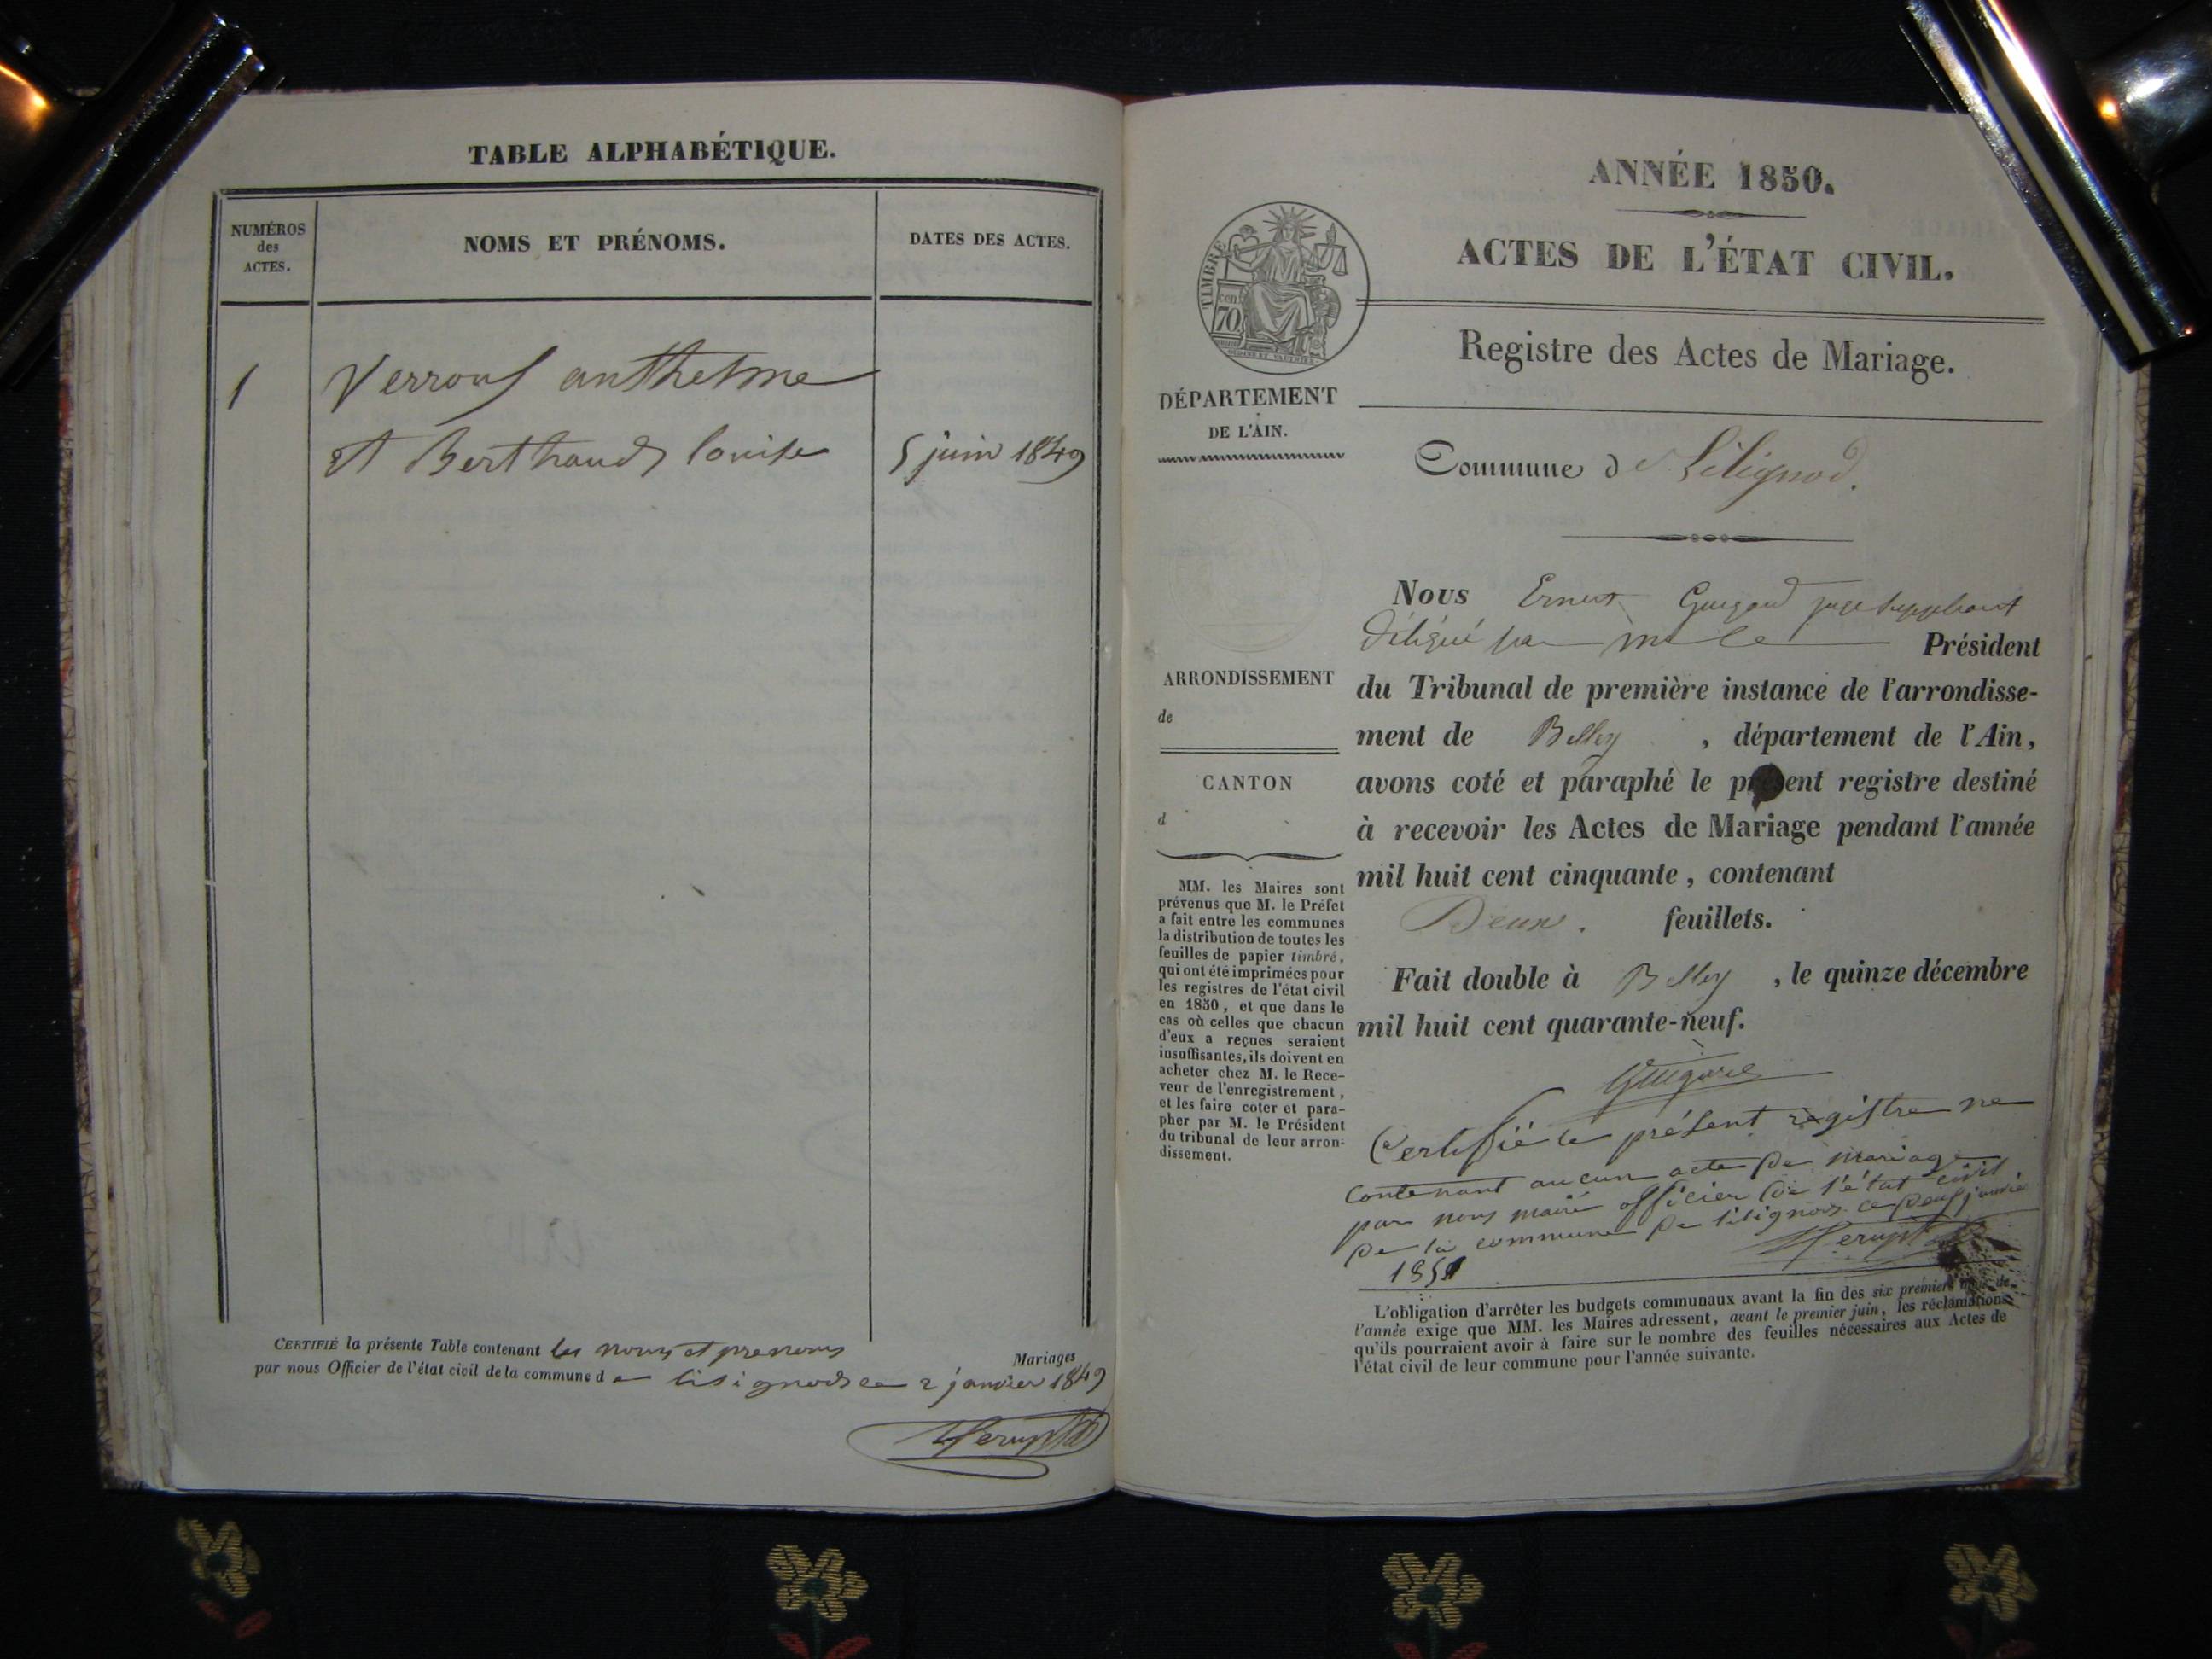 TABLE ALPHABÉTIQUE.
NUMÉROS
des
ACTES.
NOMS ET PRÉNOMS.
DATES DES ACTES.
1
Verrous anthelme
et Berthaud louise
5 juin 1849
CERTIFIÉ la présente Table contenant les noms et prenoms
Mariages
par nous Officier de l'état civil de la commune de lilignod ce 2 janvier 1849
ANNÉE 1850.
ACTES DE L'ÉTAT CIVIL.
Registre des Actes de Mariage.
TIMBRE
70
DÉPARTEMENT
DE L'AIN.
Commune de Lilignod.
ARRONDISSEMENT
de
CANTON
d
MM. les Maires sont
prévenus que M. le Préfet
a fait entre les communes
la distribution de toutes les
feuilles de papier timbré,
qui ont été imprimées pour
les registres de l'état civil
en 1850, et que dans le
cas où celles que chacun
d'eux a reçues seraient
insuffisantes, ils doivent en
acheter chez M. le Rece-
veur de l'enregistrement,
et les faire coter et para-
pher par M. le Président
du tribunal de leur arron-
dissement.
Nous Ernest juge suppléant
délégué par m le Président
du Tribunal de première instance de l'arrondisse-
ment de Belley , département de l'Ain,
avons coté et paraphé le présent registre destiné
à recevoir les Actes de Mariage pendant l'année
mil huit cent cinquante, contenant
Deux. feuillets.
Fait double à Belley , le quinze décembre
mil huit cent quarante-neuf.
Certifié le présent registre ne
contenant aucun acte de mariage
par nous maire officier de l'état civil
de la commune de lilignod ce deux janvier
1851
L'obligation d'arrêter les budgets communaux avant la fin des six premiers mois de
l'année exige que MM. les Maires adressent, avant le premier juin, les réclamations
qu'ils pourraient avoir à faire sur le nombre des feuilles nécessaires aux Actes de
l'état civil de leur commune pour l'année suivante.